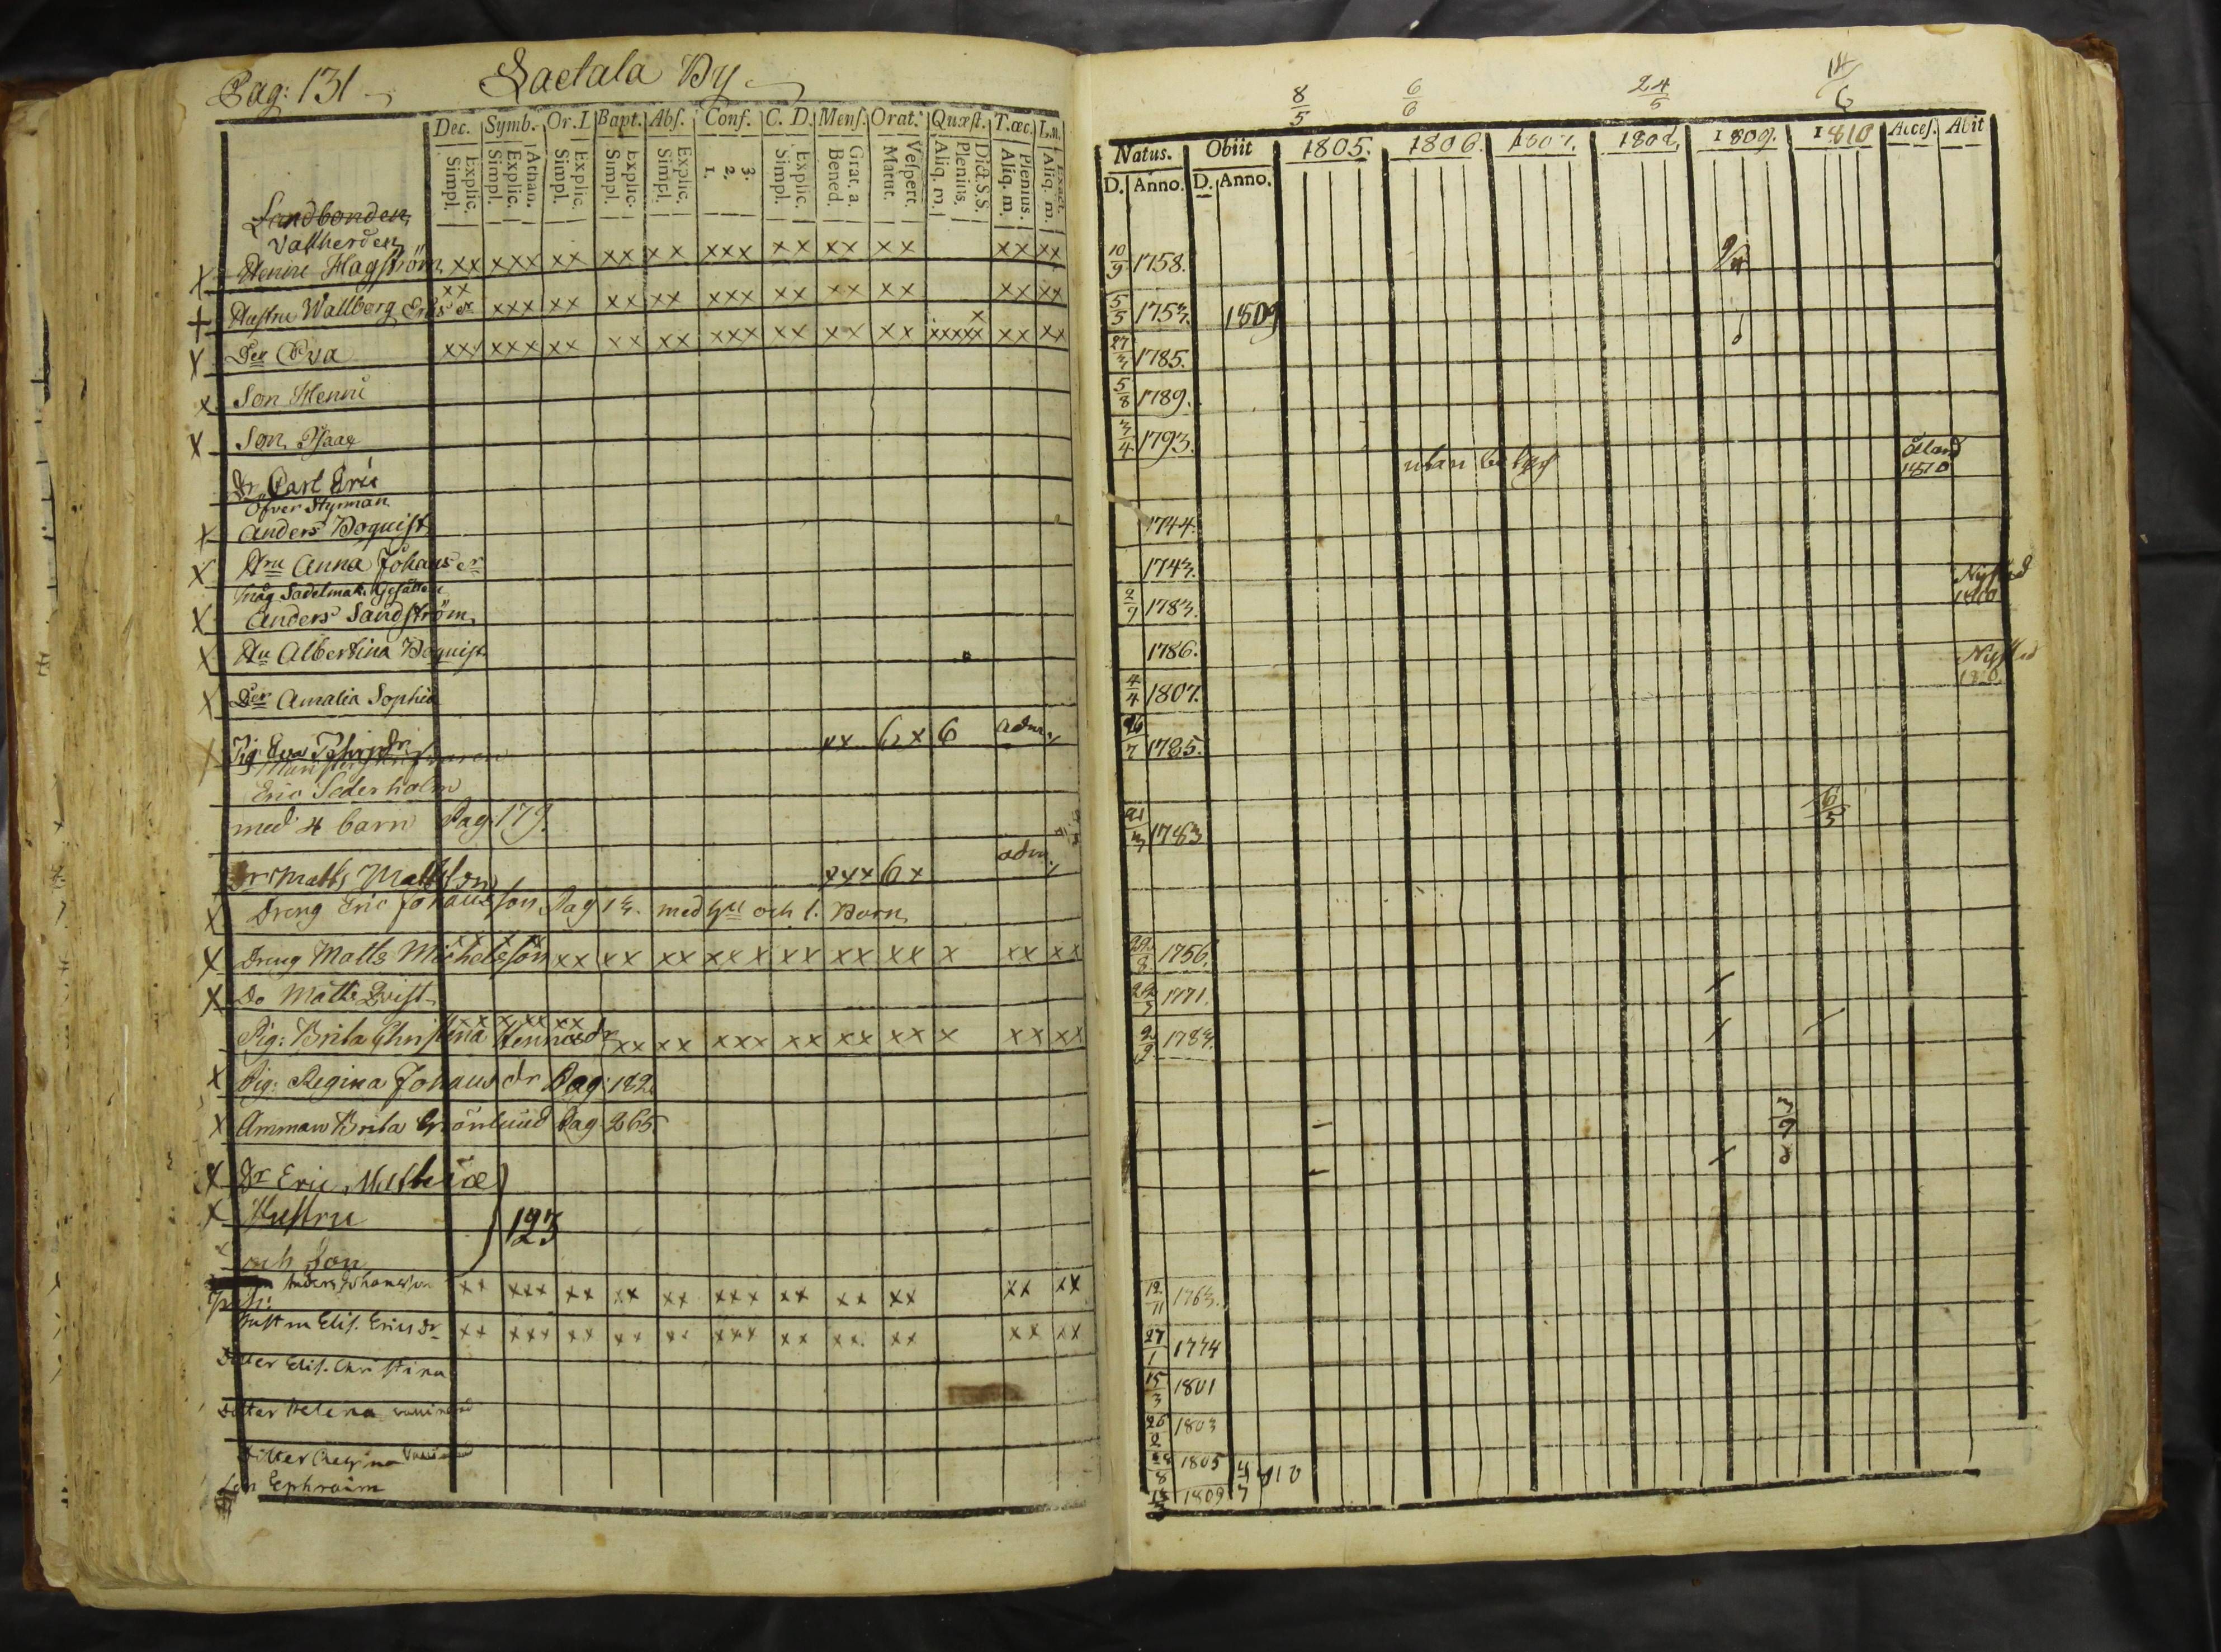 Pag: 131 Laetala By
Dec. Symb. Or. D. Bapt. Abs. Conf. C. D. Mens. Orat. Quæst. T. œc. L. n.
Explic. Simpl. Athan. Explic. Simpl. Explic. Simpl. Explic. Simpl. Explic. Simpl. 3. 2. 1. Explic. Simpl. Grat. a. Bened. Vespert. Matut. Dict. S. S. Plenius. Aliq. m. Plenius. Aliq. m. Exact. Aliq. m.
Landbonden
Vallherden
X Henric Hagström xx xxx xx xx xx xxx xx xx xx xx xx
X Hustru Wallborg Ericsdr xx xxx xx xx xx xxx xx xx xx xx xx
X Dr Eva xxx xxx xx xx xx xxx xx xx xx xxxxx xx xx
x Son Henric
X Son Isaac
Dr Carl Eric
Öfver Styrman
X Anders Boquist
X Hru Anna Johansdr
Måg Sadelmak. Gesällen
X Anders Sandström
X Hu Albertina Boquist
X Dr Amalia Sophia
Pig Eva xx 6x 6 adm
Eric Söderholm
med 4 barn Pag. 179
Matts Mattsson xxx 6x adm
X Dreng Eric Johansson Pag med hu och 1. Barn
X Dreng Matts Michelsson xx xx xx xxx xx xx xx x xx xx
X Do Matts Qvist
Pig: Brita Christina Henricsdr xx xx xxx xx xx xxx x xx xx
X Pig: Regina Johansdr Pag: 182
X Amman Brita Grönlund Pag 265
X Dr Eric Matthiæ
X Hustru 123
och Son
Anders Johansson xx xxx xx xx xx xxx xx xx xx xx xx
Hustru Elis. Ericsdr xx xxx xx xx xx xxx xx xx xx xx xx
Dotter Elis. Christina
Dotter Helena vaccinerad
Dotter Regina
Son Ephraim
8/5 6/6 24/5 14/6
Natus. Obiit 1805. 1806. 1807. 1808. 1809. 1810 Acces. Abit
D. Anno. D. Anno.
10/9 1758.
5/5 1753. 1809
27/3 1785.
5/8 1789.
3/4 1793.
utan betyg Åland 1810
1744.
1743.
2/9 1783. Nystad 1810
1786.
4/4 1807. Nystad 1810
26/7 1785.
21/3 1783 6/5
22/8 1756.
22/3 1771.
2/9 1783.
3/9
12/11 1763.
27/1 1774
15/3 1801
26/2 1803
28/8 1805 4/7 1810
13/3 1809